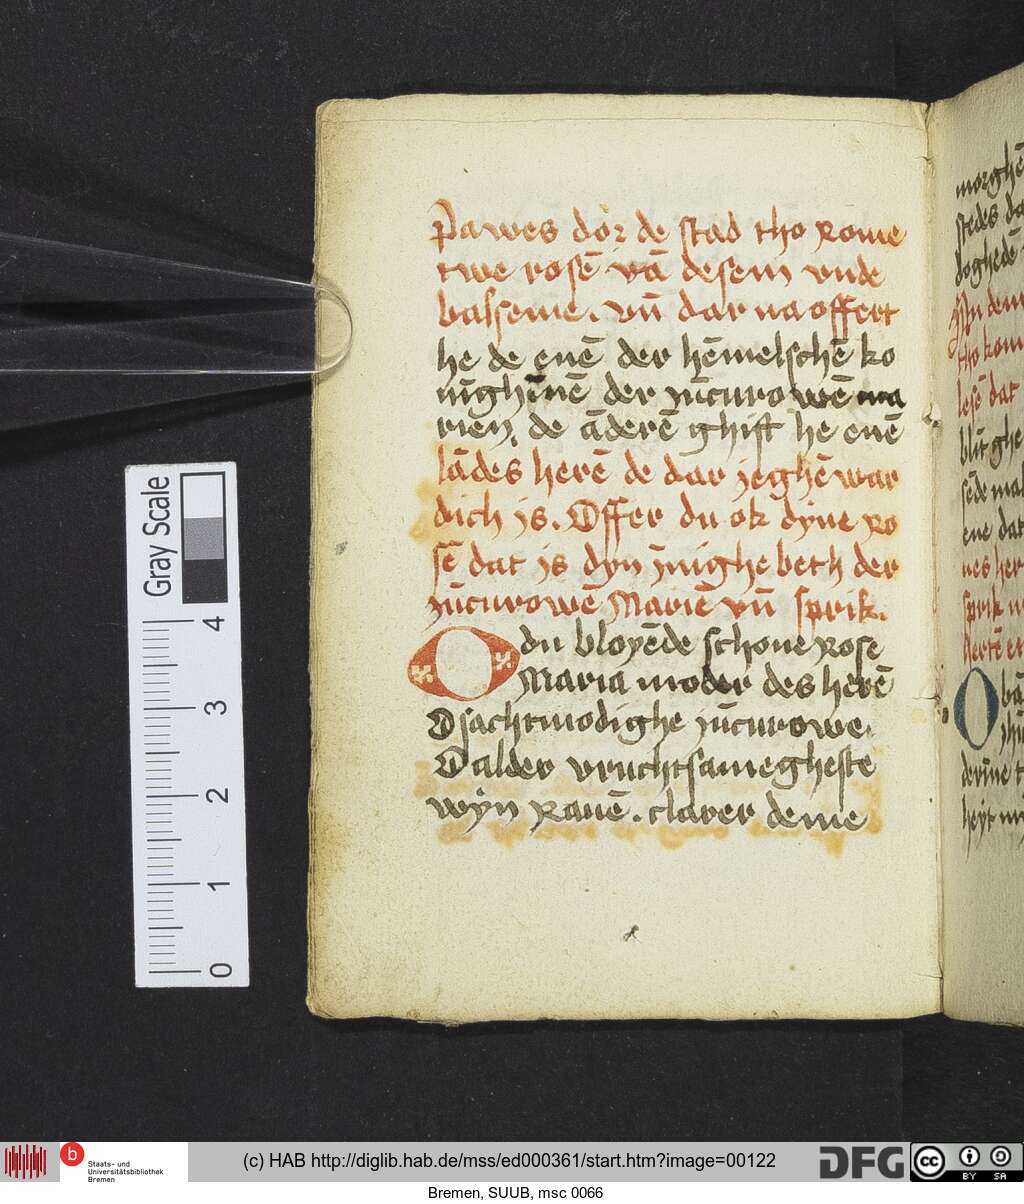 Pawes dor de stad tho Rome
twe rosē vā desem vnde
balseme. vn̄ dar na offert
he de enē der hēmelschē ko
nīghīnē der yūcvrowē ma
rien, de āderē ghift he enē
lādes herē de dar jeghē war
dich js. Offer du ok dyne ro
sē dat is dyn jnnighe beth der
yūcvrowē Mariē vn̄ sprik.
O du bloyēde schone rose
Maria moder des herē
O sachtmodighe jūcvrowe.
O alder vruchtsamegheste
wyn Ranē. clarer deme
morghē
stedes
doghedē
tho kom
lesē dat
blit ghe
sēde ma
ene dat
nes her
sprik
derīne
Gray Scale
4
3
2
1
0
b
Staats- und
Universitätsbibliothek
Bremen
(c) HAB http://diglib.hab.de/mss/ed000361/start.htm?image=00122
DFG
cc
BY SA
Bremen, SUUB, msc 0066